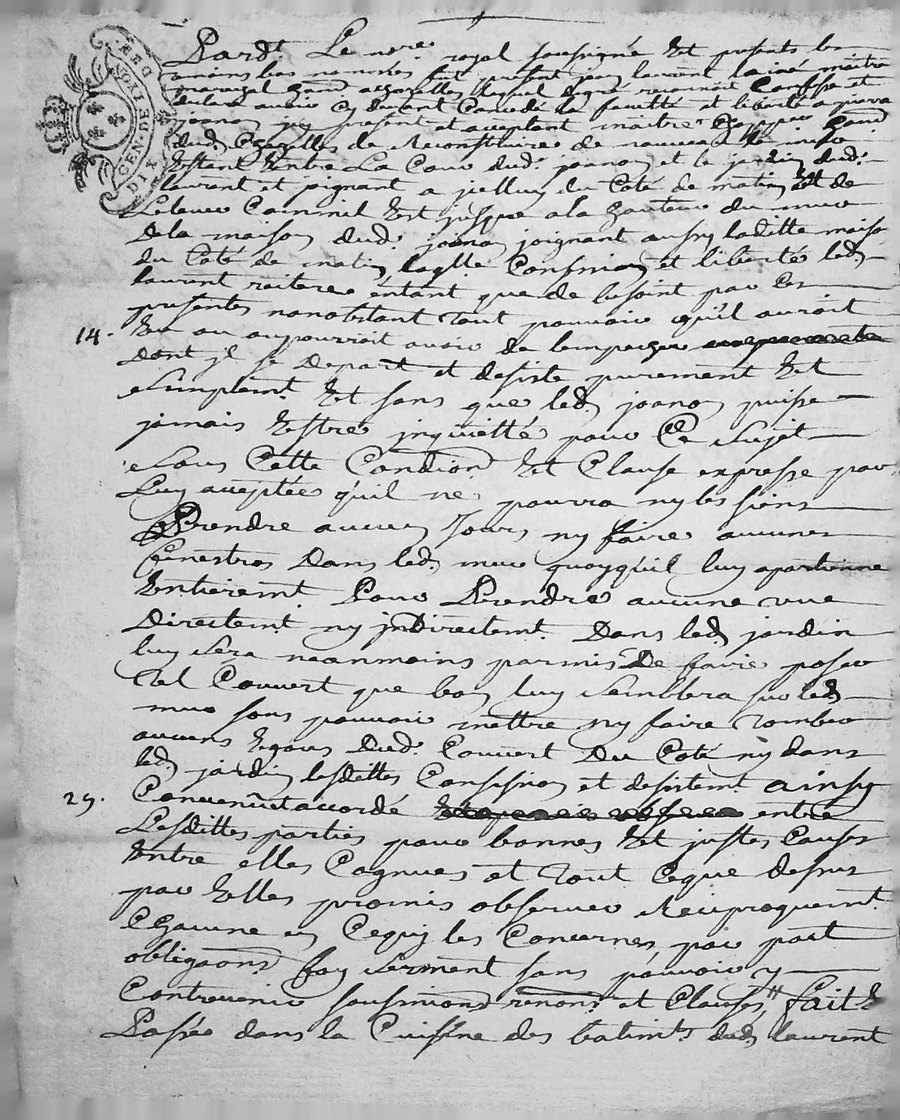 GEN. DE DIX DEN
Pardt Le nore royal soussigné Et presents les
temoins bas només fut present jean laurent laisné maitre
marechal lequel de gré reconnoit Confesse et
declare avoir cy devant Concedé la faculté et liberté a
joanon icy present et acceptant maitre
dud. de Reconstruire de nouveau le mur
Estant Entre La Cour dud. joanon et le jardin dud.
laurent et pignant a jcelluy du Coté de matin Et de
Lelever Comme il Est jusque a la hauteur du mur
De la maison dud. joanon joignant aussy laditte maison
du Coté de matin laqlle Confession et liberté led.
laurent reitere entant que de besoint par Ces
presentes nonobstant tout pouvoir qu'il auroit
14. Eu ou aupourroit avoir de lempecher
Dont jl se Depart et desiste purement Et
Simplemt Et sans que led. joanon puisse
jamais Estre jnquietté pour Ce Sujet
Sous Cette Condion Et Clause expresse par
Luy aceptée qu'il ne pourra ny les siens
Prendre aucun Jours ny faire aucunes
fenestres Dans led. mur quoyqu'il luy apartienne
Entieremt Pour Prendre aucune vue
Directemt ny jndirectemt Dans led. jardin
luy sera neanmoins parmis De faire poser
Tel Couvert que bon luy Semblera sur led.
mur sans pouvoir mettre ny faire tomber
aucuns Egous Dud. Couvert Du Coté ny dans
led. jardin lesdittes Confession et desistemt ainsy
29. Convenu et accordé entre
Lesdittes parties pour bonnes Et justes Causes
Entre elles Cognues et Tout Ceque desus
par Elles promis observer Reciproquemt
Chacune en Cequy les Concernes par part
obligaons foy serment sans pouvoir y
Contrevenir sousmions renons et Clauses fait E
Passée dans la Cuisine des batimts dud. laurent